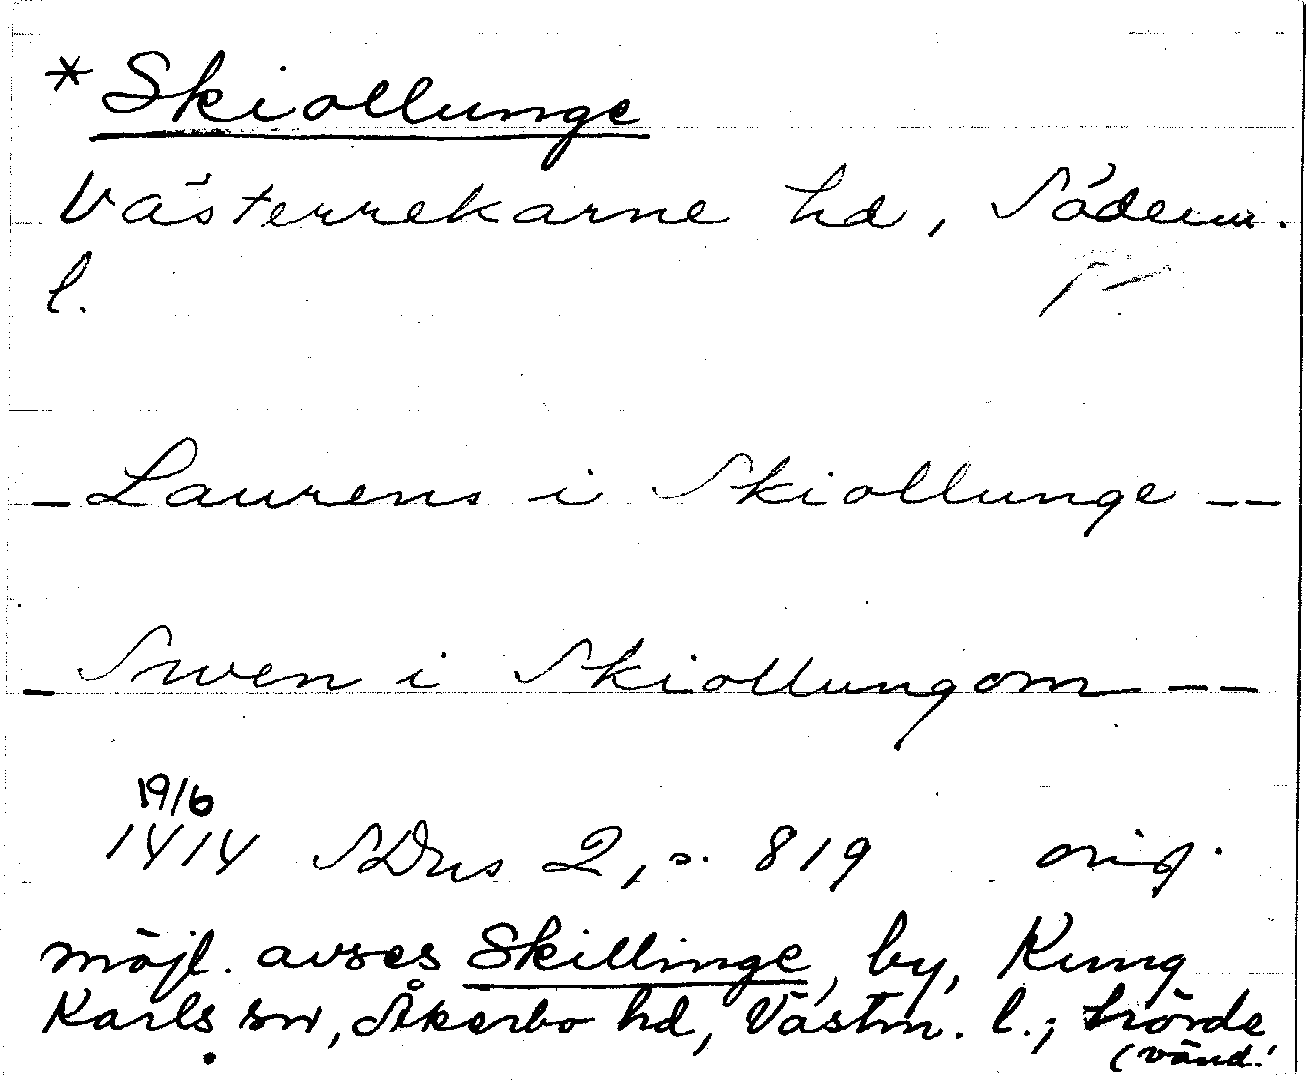 * Skiollunge
Västerrekarne hd, Söderm.
l.
— Laurens i Skiollunge — —
— Swen i Skiollungom — —
19/6
1414 SDns 2, s. 819 orig.
möjl. avses Skillinge, by, Kung
Karls sn, Åkerbo hd, Västm. l.; hörde
(vänd!